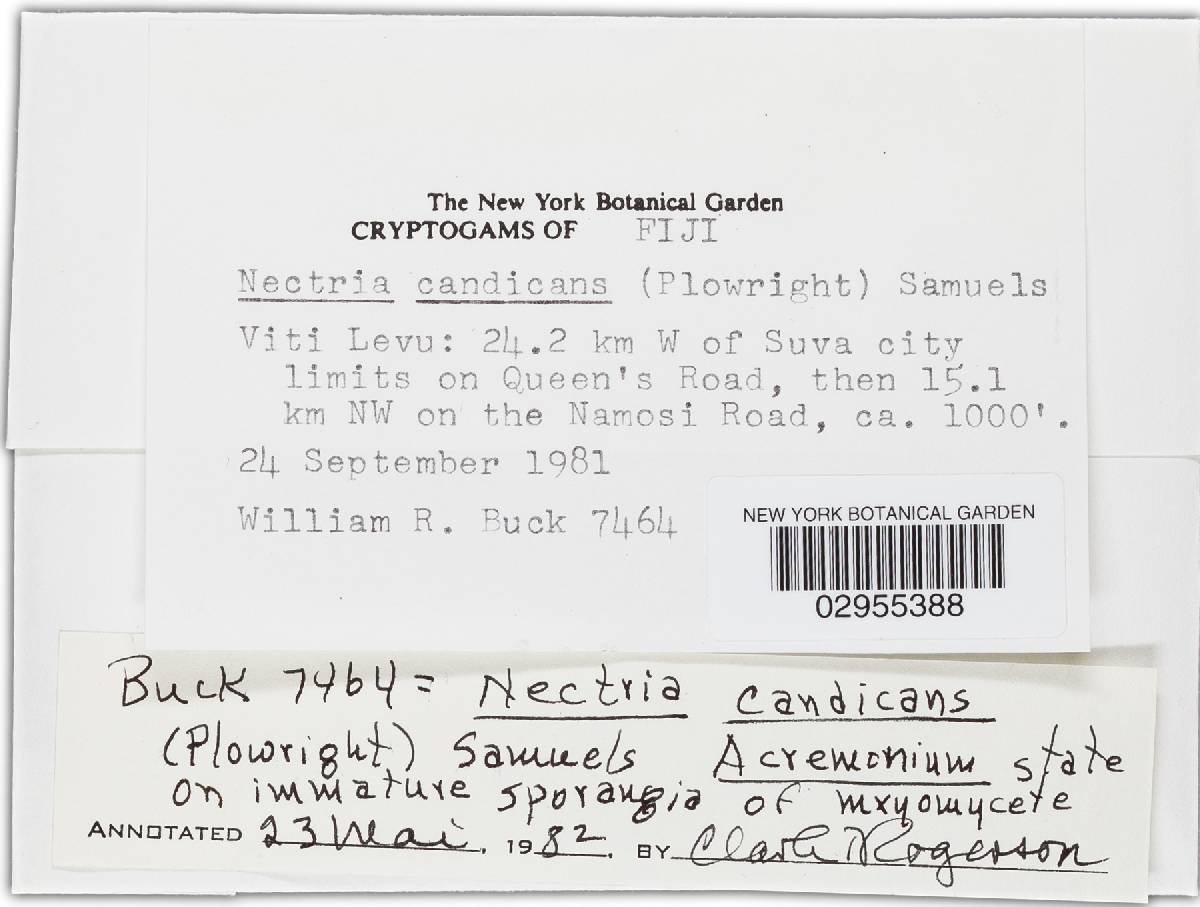 The New York Botanical Garden
CRYPTOGAMS OF FIJI
Nectria candicans (Plowright) Samuels
Viti Levu: 24.2 km W of Suva city
limits on Queen's Road, then 15.1
km NW on the Namosi Road, ca. 1000'.
24 September 1981
William R. Buck 7464
NEW YORK BOTANICAL GARDEN
02955388
Buck 7464 = Nectria candicans
(Plowright) Samuels Acremonium state
on immature sporangia of mxyomycete
ANNOTATED 23 Mai, 1982. BY Clark T Rogerson